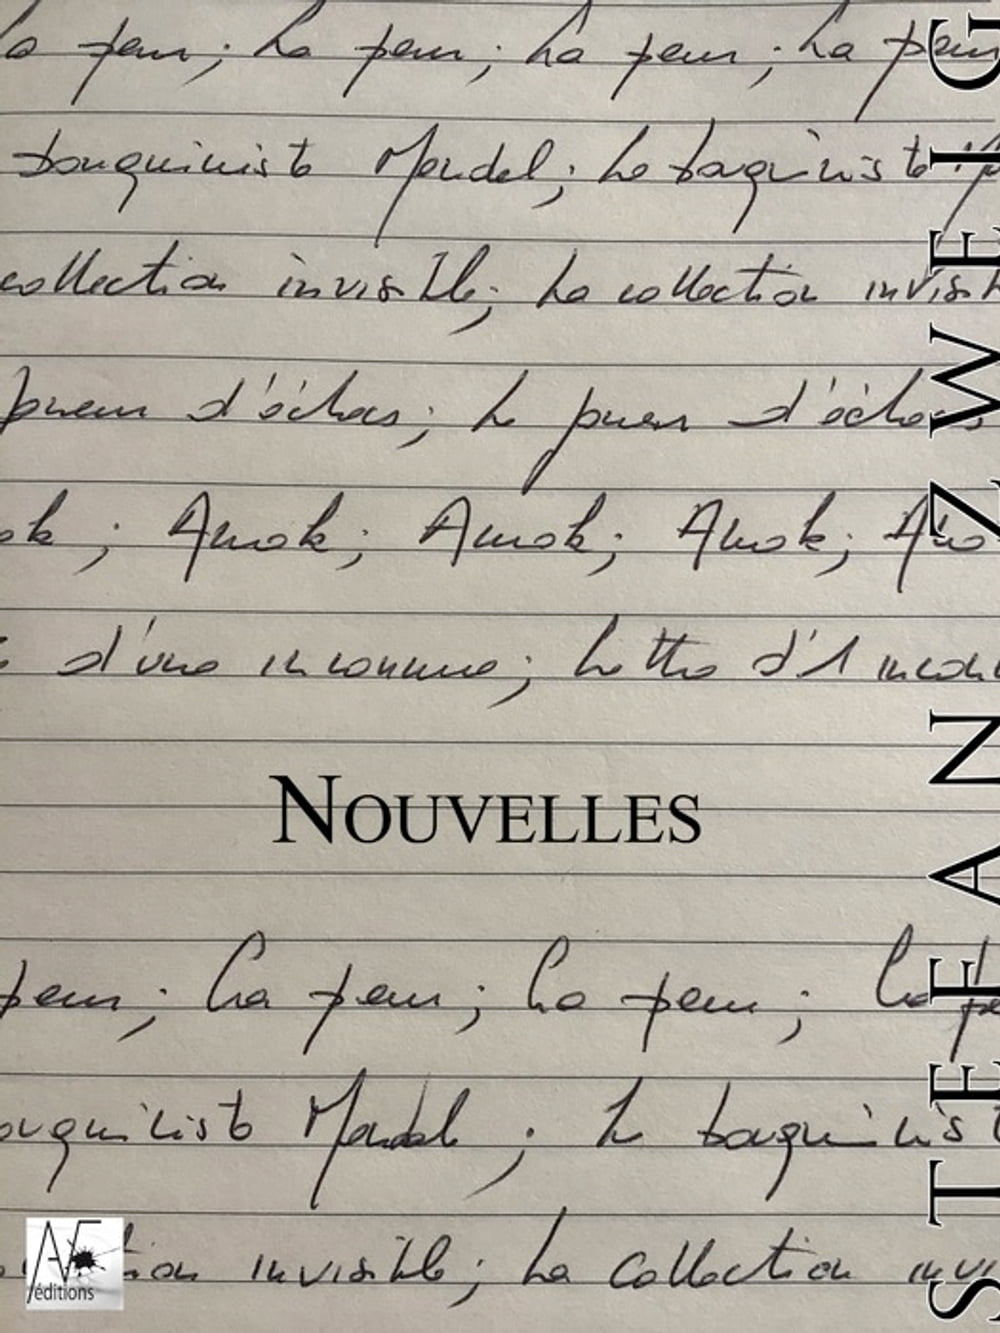 La peur ; La peur ; La peur ; La peur
bouquiniste Mendel ; Le bouquiniste
collection invisible ; La collection invisib
joueur d'échecs ; Le joueur d'échecs
ok ; Amok ; Amok ; Amok ; Amo
d'une inconnue ; Lettre d'1 incon
NOUVELLES
peur ; La peur ; La peur ; La pe
ouquiniste Mendel ; Le bouquinist
tion invisible ; La collection invi
AF
éditions
STEFAN ZWEIG